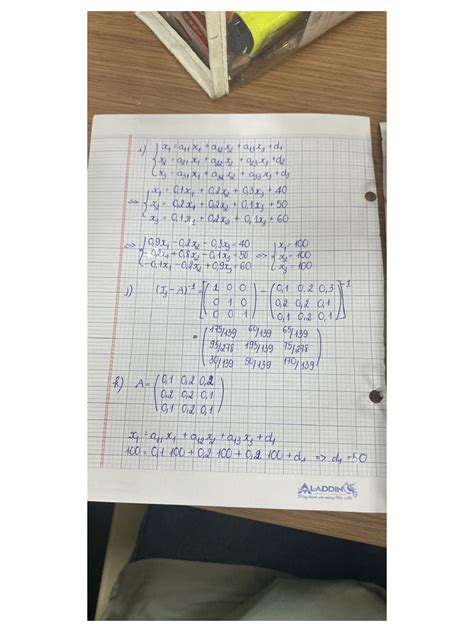 i) { x₁ = a₁₁x₁ + a₁₂x₂ + a₁₃x₃ + d₁
x₂ = a₂₁x₁ + a₂₂x₂ + a₂₃x₃ + d₂
x₃ = a₃₁x₁ + a₃₂x₂ + a₃₃x₃ + d₃
⇔ { x₁ = 0,1x₁ + 0,2x₂ + 0,3x₃ + 40
x₂ = 0,2x₁ + 0,2x₂ + 0,1x₃ + 50
x₃ = 0,1x₁ + 0,2x₂ + 0,1x₃ + 60
⇔ { 0,9x₁ - 0,2x₂ - 0,3x₃ = 40 ⇔ { x₁ = 100
-0,2x₁ + 0,8x₂ - 0,1x₃ = 50 x₂ = 100
-0,1x₁ - 0,2x₂ + 0,9x₃ = 60 x₃ = 100
j) (I₃ - A)⁻¹ = [ ( 1 0 0 ) - ( 0,1 0,2 0,3 ) ]⁻¹
0 1 0 0,2 0,2 0,1
0 0 1 0,1 0,2 0,1
= ( 175/139 60/139 65/139 )
95/278 195/139 75/278
30/139 50/139 170/139
k) A = ( 0,1 0,2 0,2 )
0,2 0,2 0,1
0,1 0,2 0,1
x₁ = a₁₁x₁ + a₁₂x₂ + a₁₃x₃ + d₁
100 = 0,1 100 + 0,2 100 + 0,2 100 + d₁ ⇒ d₁ = 50
ALADDIN